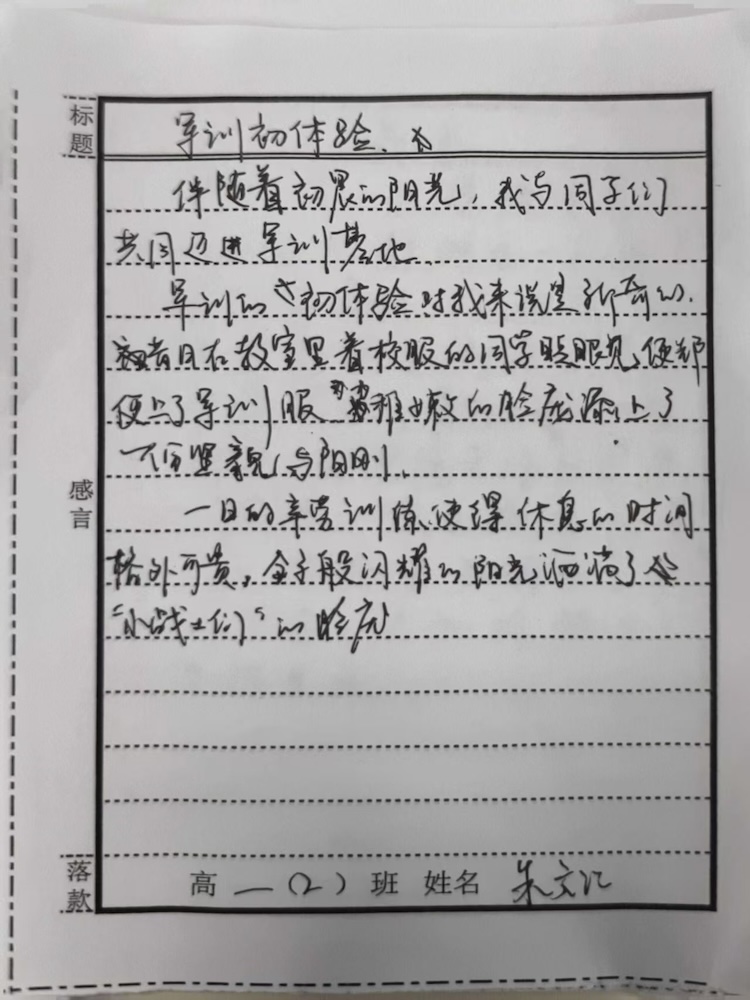 标题
军训初体验.
伴随着初晨的阳光，我与同学们
共同迈进军训基地.
军训的初体验对我来说是新奇的.
昔日在教室里着校服的同学眨眼儿便都
便上了军训服 稚嫩的脸庞添上了
一份坚毅与阳刚.
感言
一日的辛劳训练使得休息的时间
格外可贵，金子般闪耀的阳光洒满了
“小战士们”的脸庞
落款
高一（2）班 姓名 朱文